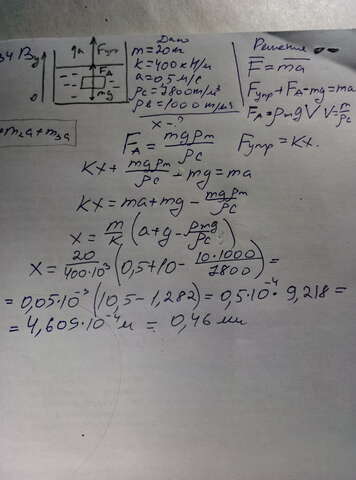 Дано
m = 20кг
k = 400 кН/м
a = 0,5 м/с
ρс = 7800 кг/м³
ρв = 1000 кг/м³
x - ?
Решение
F = ma
Fупр + FA - mg = ma
FA = ρжgV V = m/ρс
ga Fупр
y
FA
mg
0
m₂a + m₃a
FA = mgρж/ρс Fупр = Kx.
Kx + mgρж/ρс - mg = ma
Kx = ma + mg - mgρж/ρс
x = m/K (a + g - ρжg/ρс)
x = 20/400·10³ (0,5 + 10 - 10·1000/7800) =
= 0,05·10⁻³ (10,5 - 1,282) = 0,5·10⁻⁴· 9,218 =
= 4,609·10⁻⁴ м = 0,46 мм